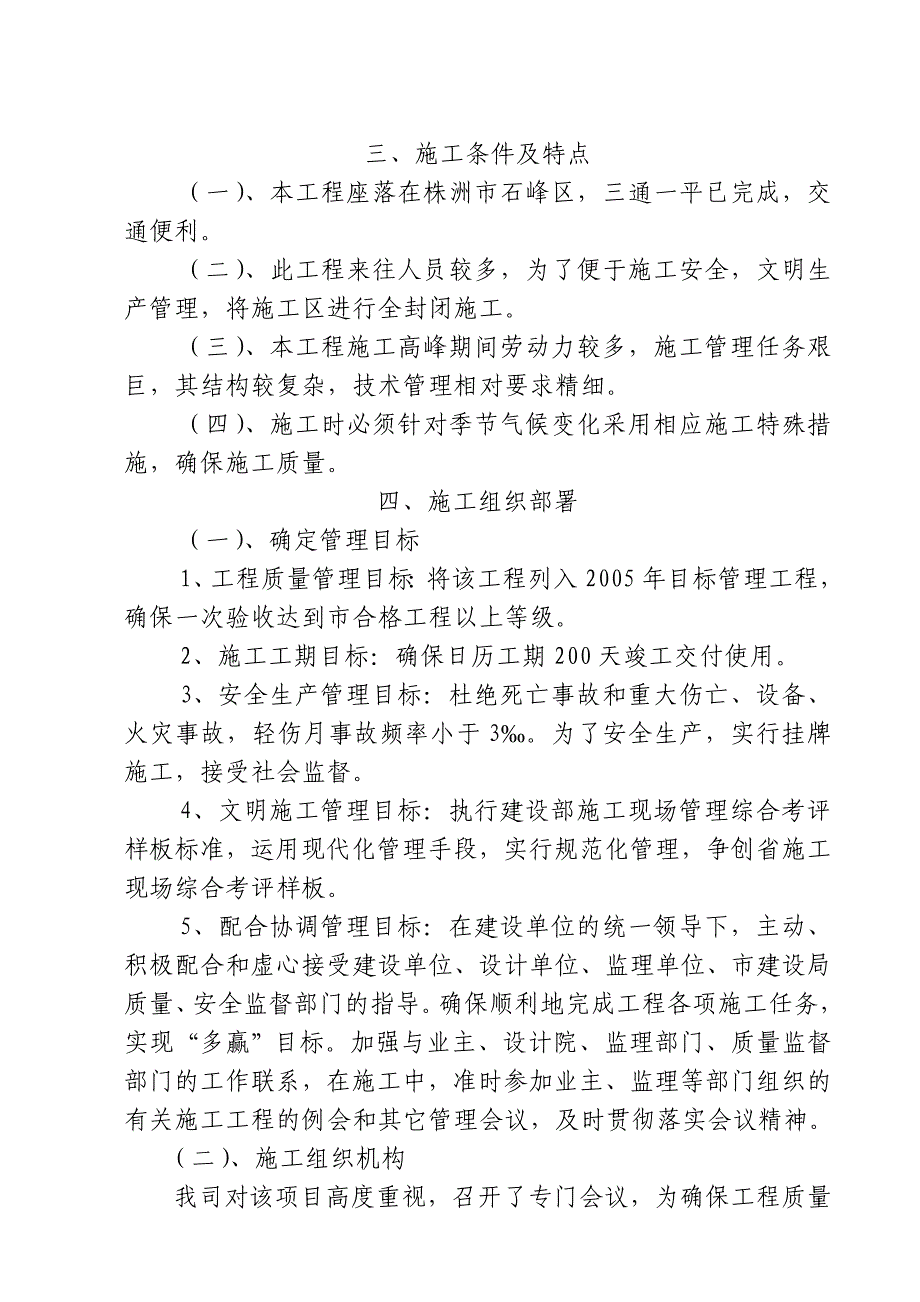 三、施工条件及特点
（一）、本工程座落在株洲市石峰区，三通一平已完成，交
通便利。
（二）、此工程来往人员较多，为了便于施工安全，文明生
产管理，将施工区进行全封闭施工。
（三）、本工程施工高峰期间劳动力较多，施工管理任务艰
巨，其结构较复杂，技术管理相对要求精细。
（四）、施工时必须针对季节气候变化采用相应施工特殊措
施，确保施工质量。
四、施工组织部署
（一）、确定管理目标
1、工程质量管理目标：将该工程列入 2005 年目标管理工程，
确保一次验收达到市合格工程以上等级。
2、施工工期目标：确保日历工期 200 天竣工交付使用。
3、安全生产管理目标：杜绝死亡事故和重大伤亡、设备、
火灾事故，轻伤月事故频率小于 3‰。为了安全生产，实行挂牌
施工，接受社会监督。
4、文明施工管理目标：执行建设部施工现场管理综合考评
样板标准，运用现代化管理手段，实行规范化管理，争创省施工
现场综合考评样板。
5、配合协调管理目标：在建设单位的统一领导下，主动、
积极配合和虚心接受建设单位、设计单位、监理单位、市建设局
质量、安全监督部门的指导。确保顺利地完成工程各项施工任务，
实现“多赢”目标。加强与业主、设计院、监理部门、质量监督
部门的工作联系，在施工中，准时参加业主、监理等部门组织的
有关施工工程的例会和其它管理会议，及时贯彻落实会议精神。
（二）、施工组织机构
我司对该项目高度重视，召开了专门会议，为确保工程质量